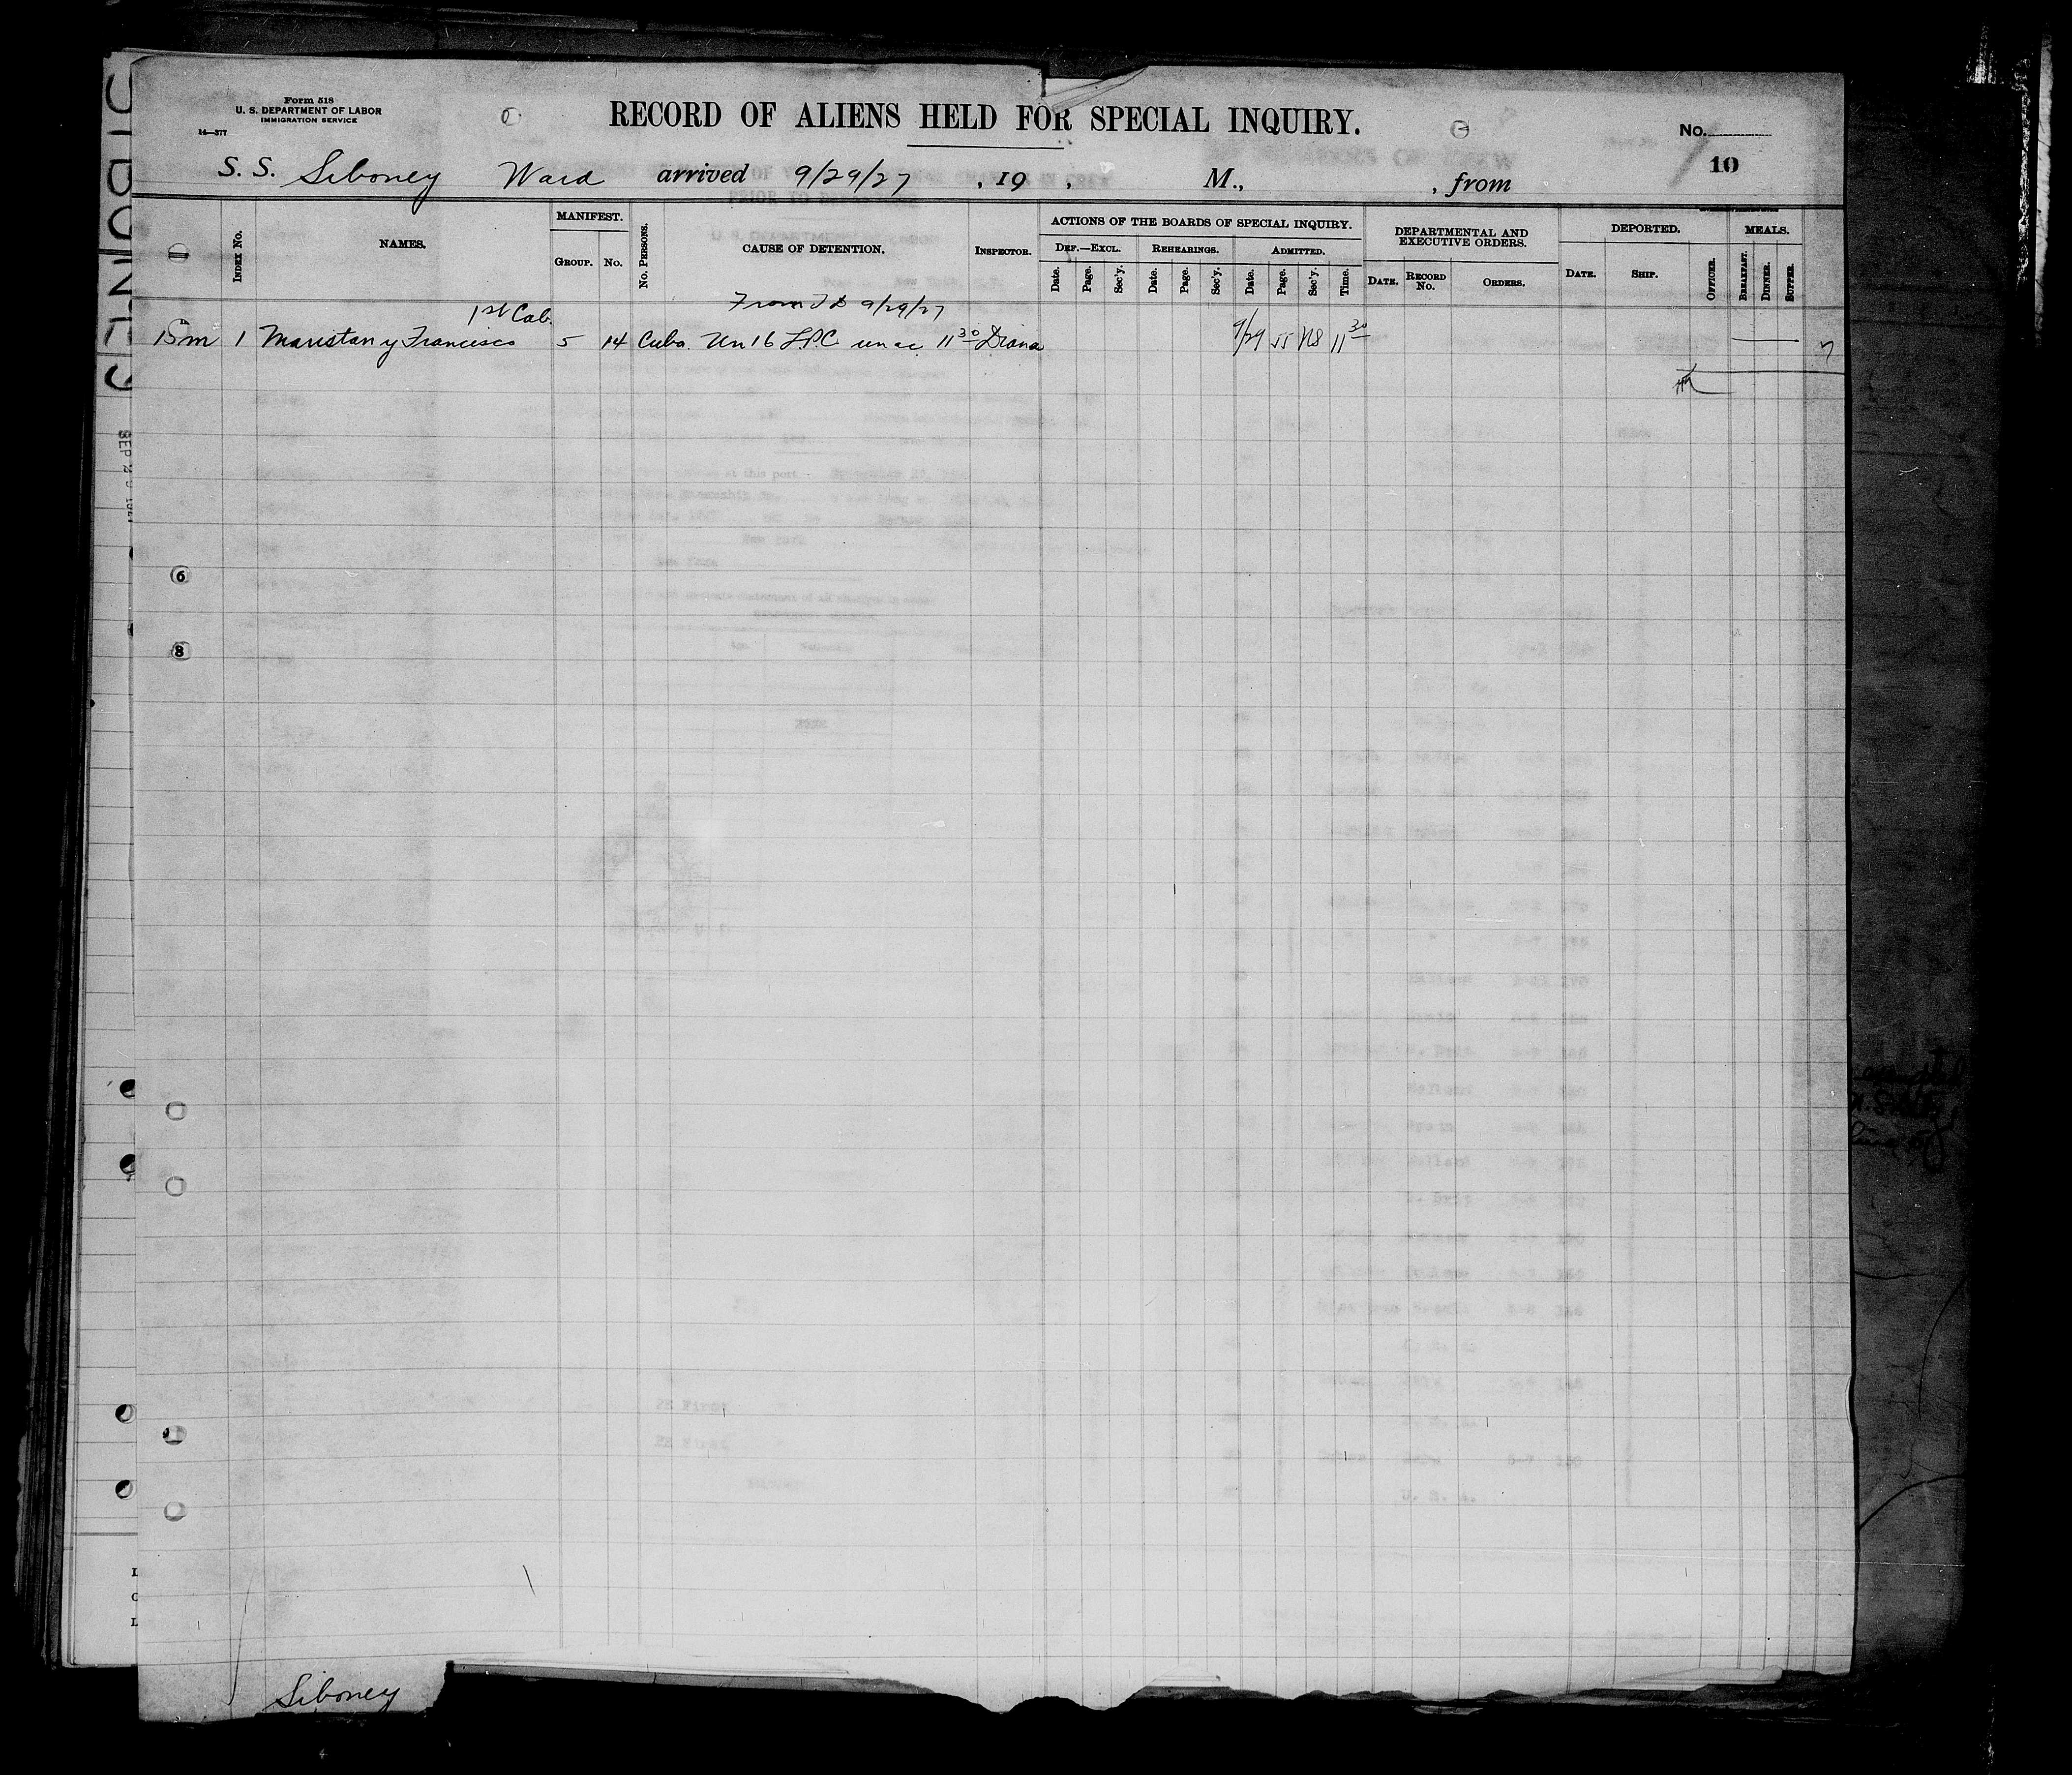 Form 518
U. S. DEPARTMENT OF LABOR
IMMIGRATION SERVICE
14—377
RECORD OF ALIENS HELD FOR SPECIAL INQUIRY.
No.
10
S. S. Siboney Ward arrived 9/29/27, 19 , M., , from
INDEX No.
NAMES.
MANIFEST.
GROUP. No.
No. PERSONS.
CAUSE OF DETENTION.
INSPECTOR.
ACTIONS OF THE BOARDS OF SPECIAL INQUIRY.
DEF.—EXCL. REHEARINGS. ADMITTED.
Date. Page. Sec'y. Date. Page. Sec'y. Date. Page. Sec'y. Time.
DEPARTMENTAL AND EXECUTIVE ORDERS.
DATE. RECORD No. ORDERS.
DEPORTED.
DATE. SHIP. OFFICER.
MEALS.
BREAKFAST. DINNER. SUPPER.
1st Cab. From T D 9/29/27
15m 1 Maristany Francisco 5 14 Cuba Un 16 LPC un ac 11 30 Diana 9/29 55 NS 11 30
6
8
Siboney
SIBONEY